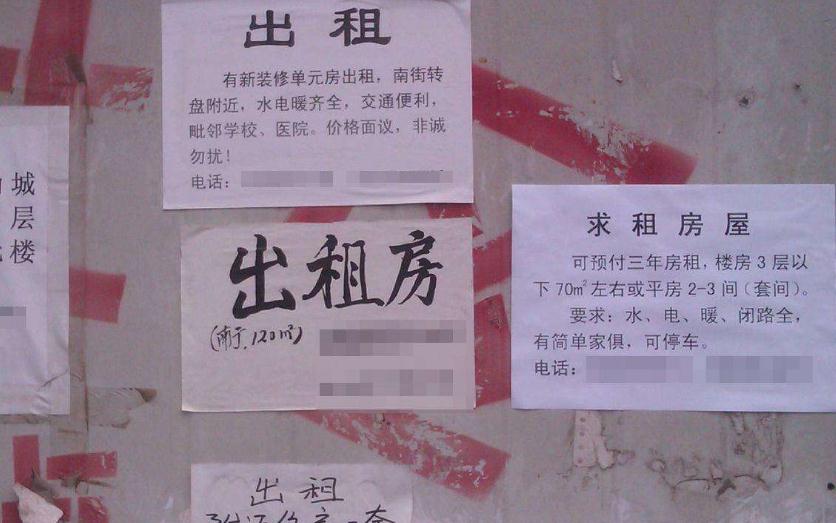 城
层
楼
出租
有新装修单元房出租，南街转
盘附近，水电暖齐全，交通便利，
毗邻学校、医院。价格面议，非诚
勿扰！
电话：
出租房
120m²)
求租房屋
可预付三年房租，楼房3层以
下70m²左右或平房2-3间（套间）。
要求：水、电、暖、闭路全，
有简单家俱，可停车。
电话：
出租